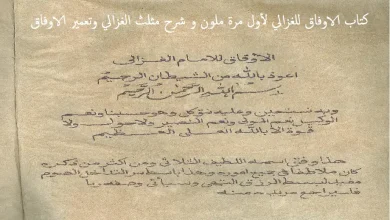 كتاب الاوفاق للغزالي لأول مرة ملون و شرح مثلث الغزالي وتعمير الاوفاق
الاوفاق للامام الغزالي
اعوذ بالله من الشيطان الرجيم
بسم الله الرحمن الرحيم
وبه نستعين وعليه نتوكل وهو حسبنا ونعم
الوكيل نعم المولى ونعم النصير ولا حول ولا
قوة الا بالله العلي العظيم
هذا وفق اسمه اللطيف الثلاثي ومن اكثر من ذكره
كان ملاطفا في جميع اموره وهذا
مفيد لبسط الرزق